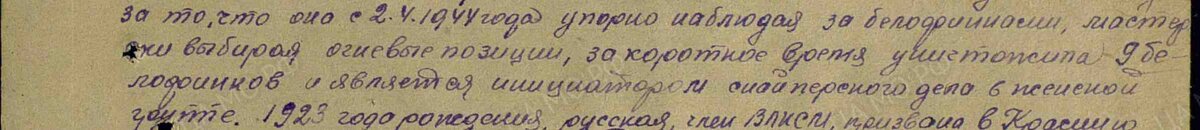 за то, что она с 2.4.1944 года упорно наблюдая за белофиннами, мастер
ски выбирая огневые позиции, за короткое время уничтожила 9 бе-
лофиннов и является инициатором снайперского дела в женской
группе. 1923 года рождения, русская, член ВЛКСМ, призвана в Красную